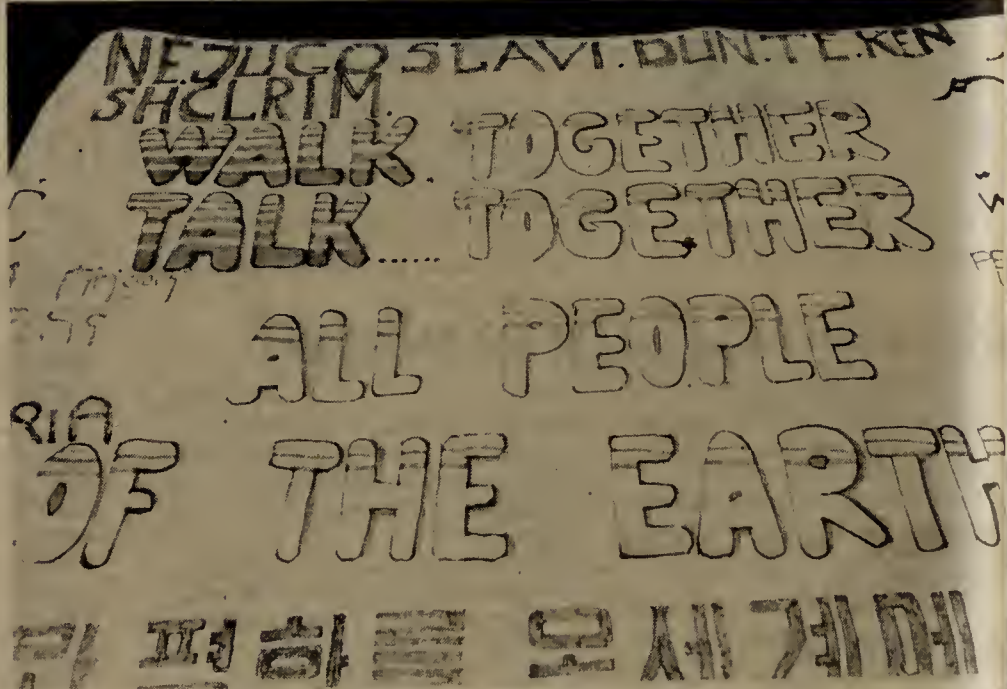 NE.JUGOSLAVI.DUN.TE.KEN
SHCLRIM.
WALK. TOGETHER
TALK...... TOGETHER
ALL PEOPLE
RIA
OF THE EARTH
평화를 온세계에